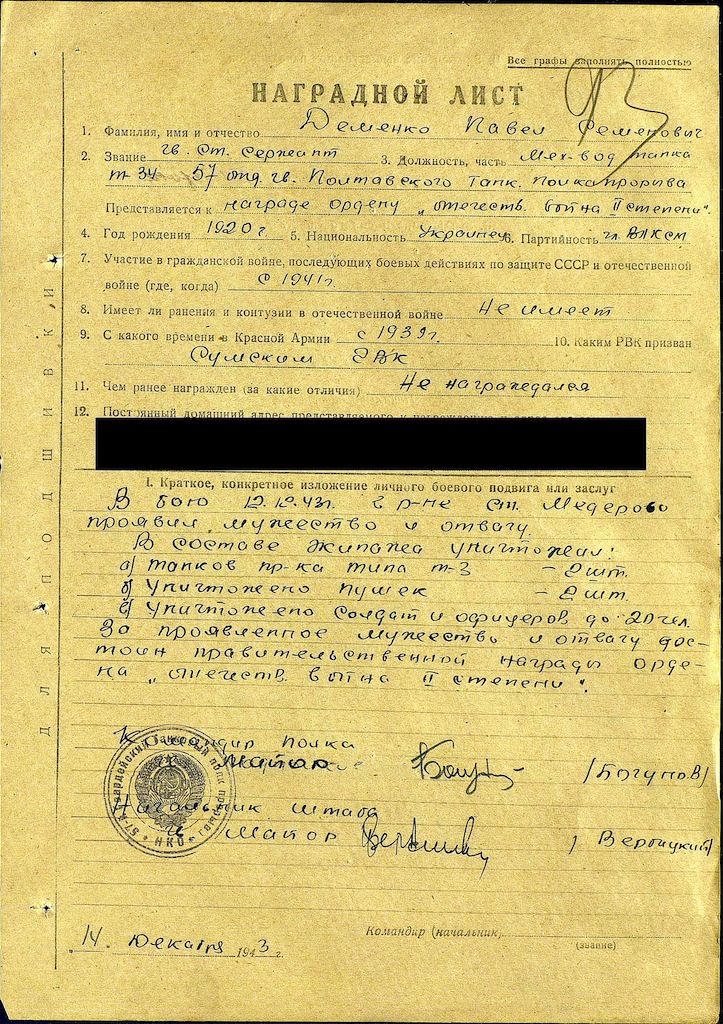 Все графы заполнять полностью
НАГРАДНОЙ ЛИСТ
1. Фамилия, имя и отчество Деменко Павел Семенович
2. Звание гв. Ст. Сержант 3. Должность, часть мех-вод танка
т-34 57 отд. гв. Полтавского Танк. полка прорыва
Представляется к награде ордену „отечеств. война II степени".
4. Год рождения 1920 г 5. Национальность Украинец 6. Партийность чл. ВЛКСМ
7. Участие в гражданской войне, последующих боевых действиях по защите СССР и отечественной
войне (где, когда) с 1941 г.
8. Имеет ли ранения и контузии в отечественной войне Не имеет
9. С какого времени в Красной Армии с 1939 г. 10. Каким РВК призван
Сумским ГВК
11. Чем ранее награжден (за какие отличия) Не награждался
12. Постоянный домашний адрес представляемого к награждению
I. Краткое, конкретное изложение личного боевого подвига или заслуг
В бою 12.12.43 г. в р-не ст. Медерово
проявил мужество и отвагу.
В составе экипажа уничтожил:
а) танков пр-ка типа т-3 – 2 шт.
б) Уничтожено пушек – 2 шт.
в) Уничтожено солдат и офицеров до 20 чел.
За проявленное мужество и отвагу дос-
тоин правительственной награды орде-
на „отечеств. война II степени".
Командир полка
Майор (Богунов)
Начальник штаба
Майор / Вербицкий/
14 Декабря 1943 г.
Командир (начальник)
(звание)
ДЛЯ ПОДШИВКИ
НКО